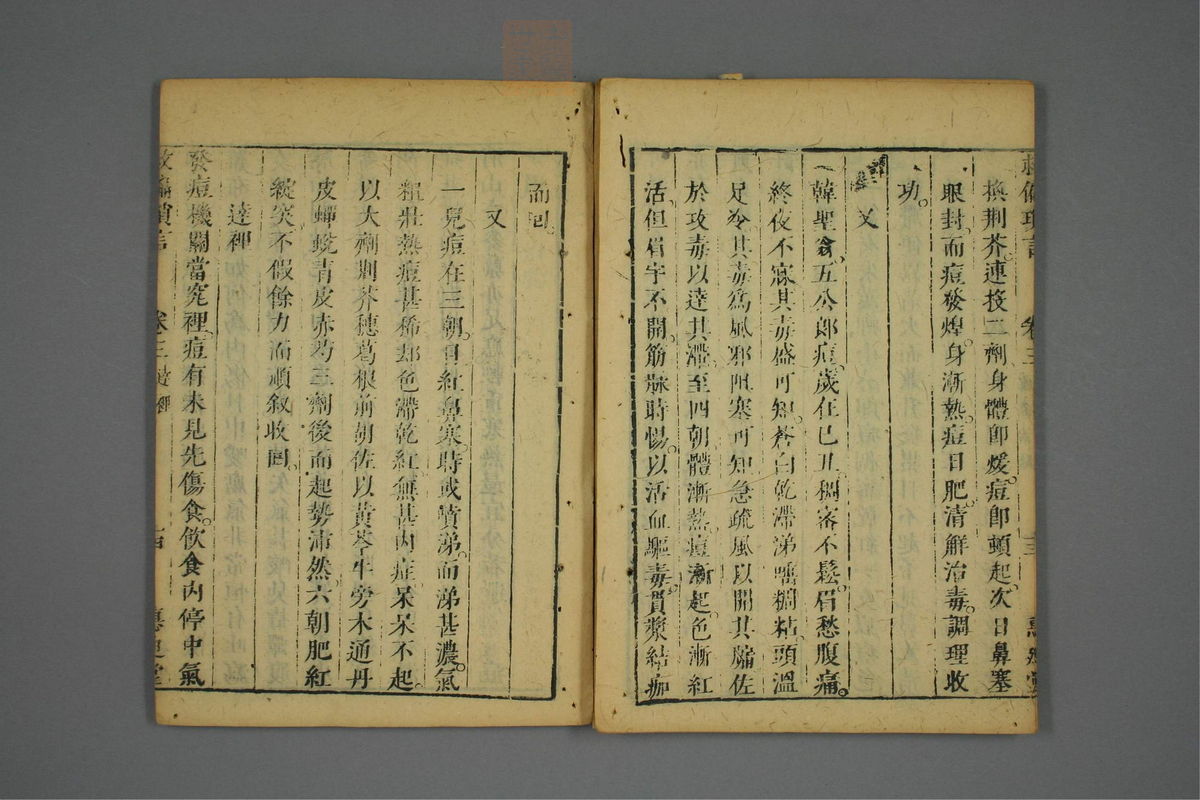 救偏瑣言 卷三 三 惠迪堂
換荆芥連投二劑身體即煖痘即頭起次日鼻塞
眼封而痘發焊身漸熱痘日肥清解治毒調理收
功
又
一韓聖翕五公郎痘歲在已丑稠密不鬆眉愁腹痛
終夜不寐其毒盛可知蒼白乾滯涕嚏稠粘頭溫
足冷其毒爲風邪阻塞可知急疏風以開其牖佐
於攻毒以達其滯至四朝體漸熱痘漸起色漸紅
活但眉宇不開筋脉時惕以活血驅毒貫漿結痂
而回
又
一兒痘在三朝目紅鼻塞時或噴涕而涕甚濃氣
粗壯熱痘甚稀却色滯乾紅無甚内症呆呆不起
以大劑荆芥穗葛根前胡佐以黄芩牛旁木通丹
皮蟬蛻青皮赤芍三劑後而起勢沛然六朝肥紅
綻突不假餘力滿頑敘收回
達裡
發痘機關當究裡痘有未見先傷食飲食内停中氣
救偏瑣言 卷三 達裡 一四 惠迪堂